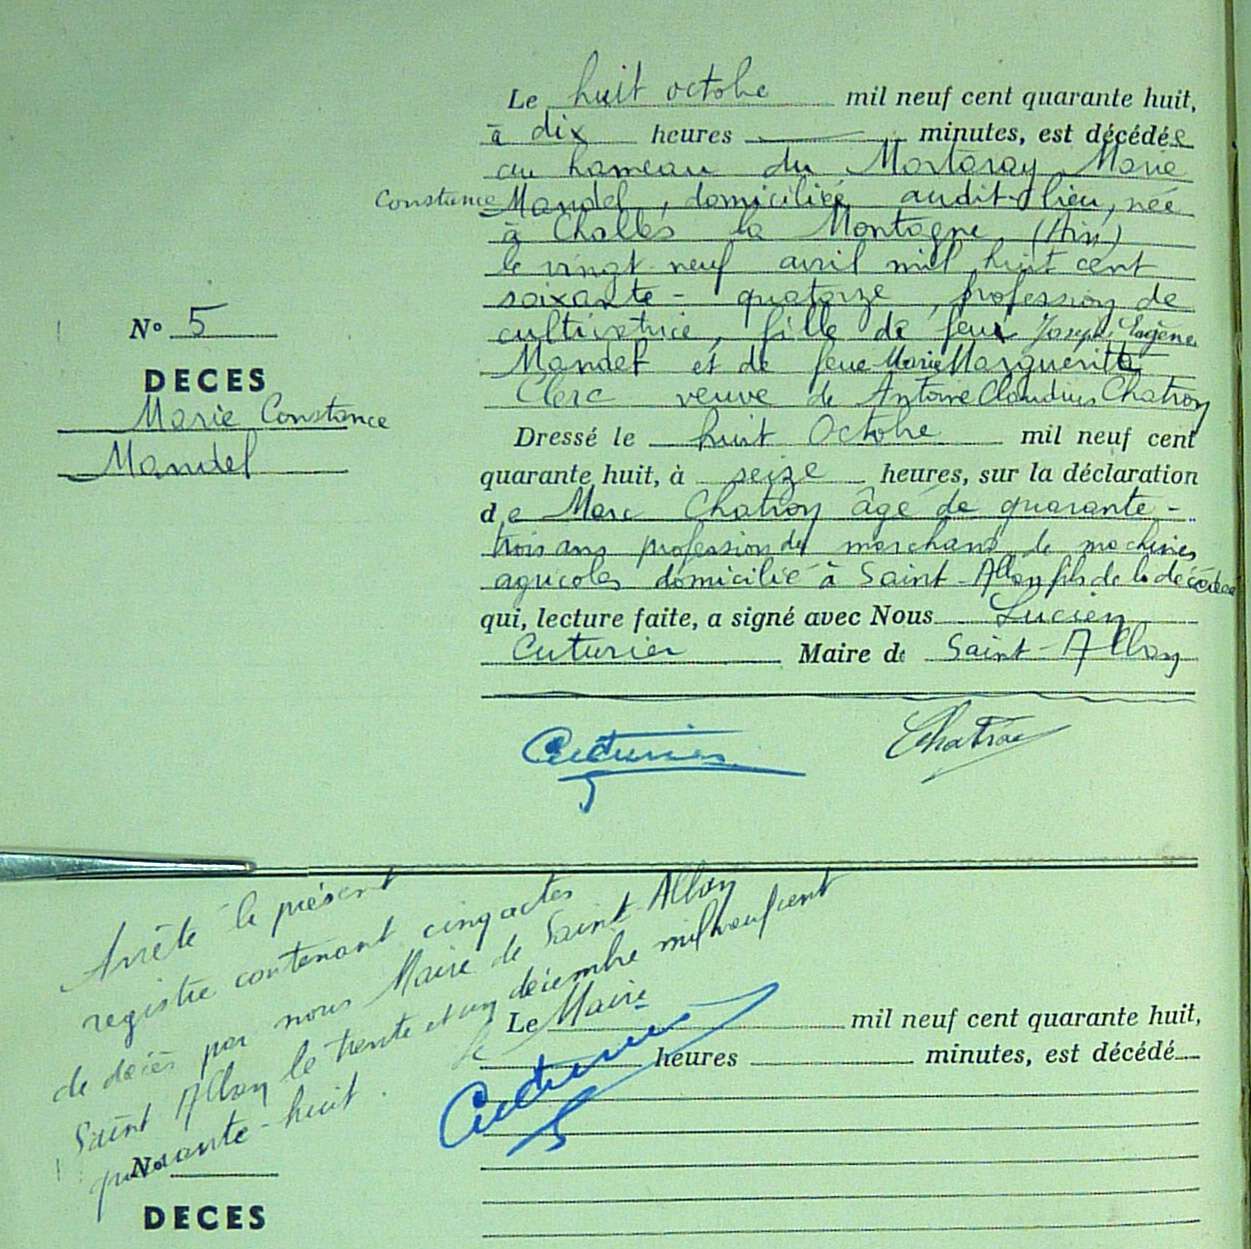 Le huit octobre mil neuf cent quarante huit,
à dix heures minutes, est décédée
au hameau du Mortaray Marie
Constance Mandel, domiciliée audit lieu, née
à Challes la Montagne (Ain)
le vingt neuf avril mil huit cent
soixante - quatorze, profession de
cultivatrice, fille de feu Joseph, Eugène
Mandel et de feue Marie Marguerite
Clerc veuve de Antoine Claudius Chatron
N° 5
DECES
Marie Constance
Mandel
Dressé le huit Octobre mil neuf cent
quarante huit, à seize heures, sur la déclaration
de Marc Chatron âgé de quarante -
trois ans profession de marchand de machines
agricoles domicilié à Saint-Alban fils de la décédée
qui, lecture faite, a signé avec Nous Lucien
Cuturier Maire de Saint-Alban
Cuturier Chatron
Arrêté le présent
registre contenant cinq actes
de décès par nous Maire de Saint-Alban
Saint Alban le trente et un décembre mil neuf cent
quarante-huit.
Le Maire
Cuturier
Le mil neuf cent quarante huit,
heures minutes, est décédé
N°
DECES